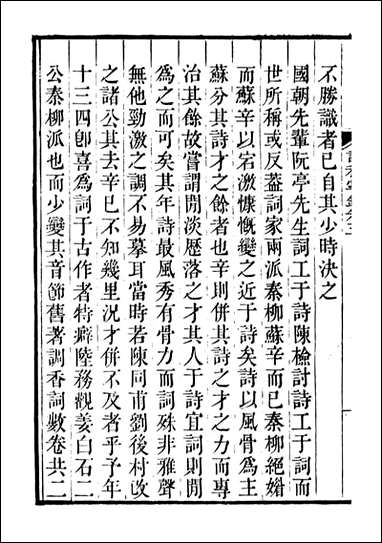 不勝識者已自其少時決之
國朝先輩阮亭先生詞工于詩陳檢討詩工于詞而
世所稱或反葢詞家兩派秦柳蘇辛而已秦柳絕媚
而蘇辛以宕激慷慨變之近于詩矣詩以風骨爲主
蘇分其詩才之餘者也辛則併其詩之才之力而專
治其餘故嘗謂閒淡歷落之才其人于詩宜詞則閒
爲之而可矣其年詩最風秀有骨力而詞殊非雅聲
無他勁激之調不易摹耳當時若陳同甫劉後村攺
之諸公其去辛已不知幾里况才併不及者乎予年
十三四卽喜爲詞于古作者特癖陸務觀姜白石二
公秦柳派也而少變其音節舊著調香詞數卷共二